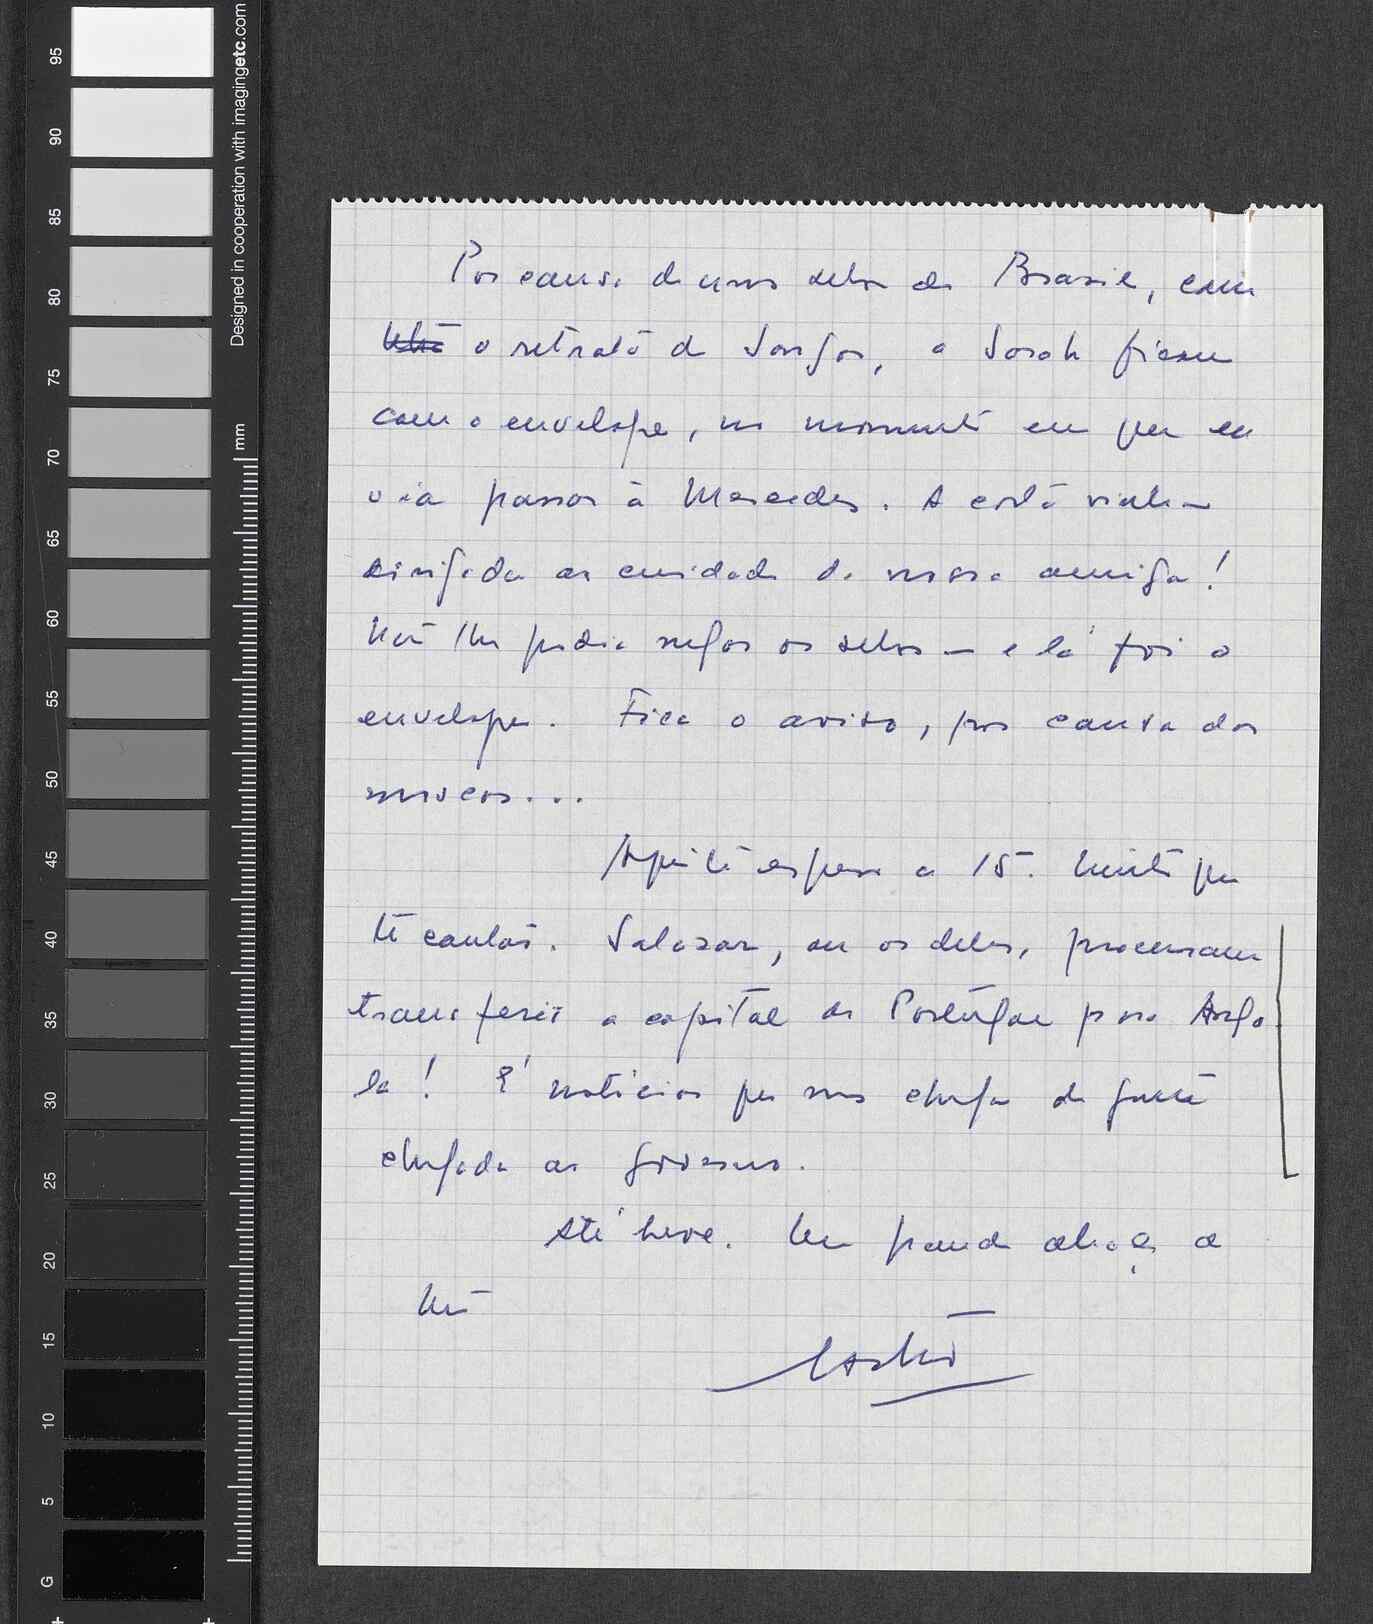 95
90
85
80
75
70
65
60
55
50
45
40
35
30
25
20
15
10
5
G
Designed in cooperation with imagingetc.com
mm
Por causa de uns selos do Brasil, com
o retrato de a Sarah ficou
com o envelope, no momento em que eu
o ia passar à Mercedes. A carta vinha
dirigida ao cuidado da nossa amiga!
Não lhe podia negar os selos — e lá foi o
envelope. Fica o aviso, por causa das
moscas...
Aqui te espero a 15. Muito que
te contar. Salazar, ou os deles, procuram
transferir a capital de Portugal para Ango-
la! É notícias que nos chega de
chegada ao governo.
Até breve. Um grande abraço do